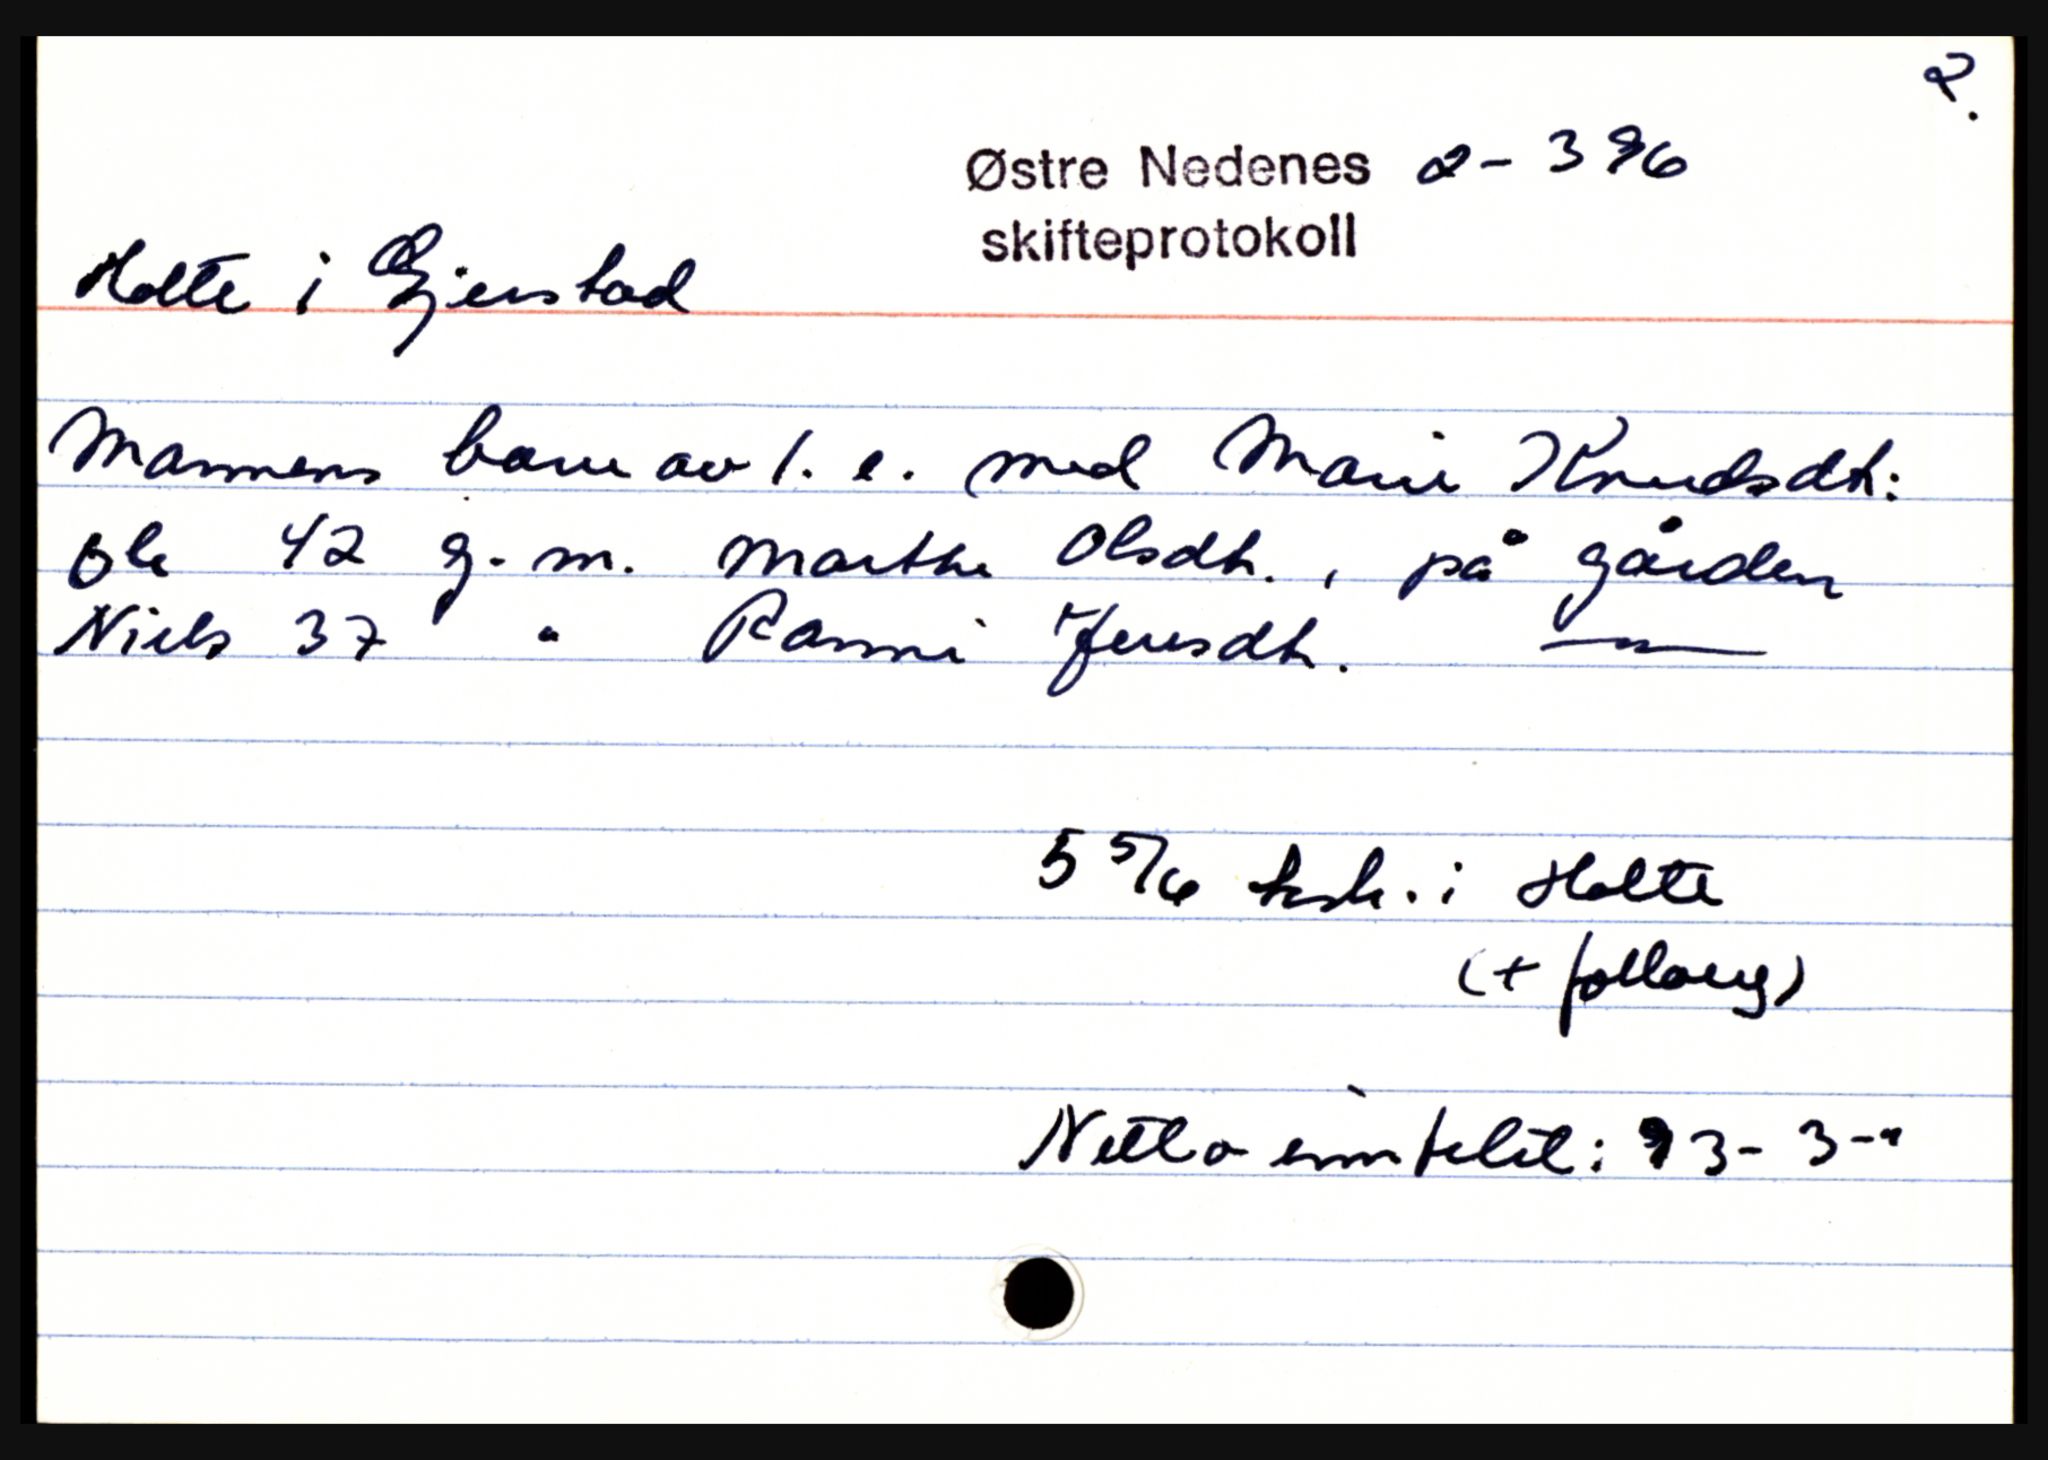 2.
Østre Nedenes 2-396
skifteprotokoll
Holte i Gjerstad
Mannens barn av 1. e. med Marie Knudsdtr:
Ole 42 g. m. Marthe Olsdtr., på gården
Niels 37 " Ranni Jensdtr. —"—
5 5/6 ksk. i Holte
(+ follaug)
Netto innteld: 93-3-"